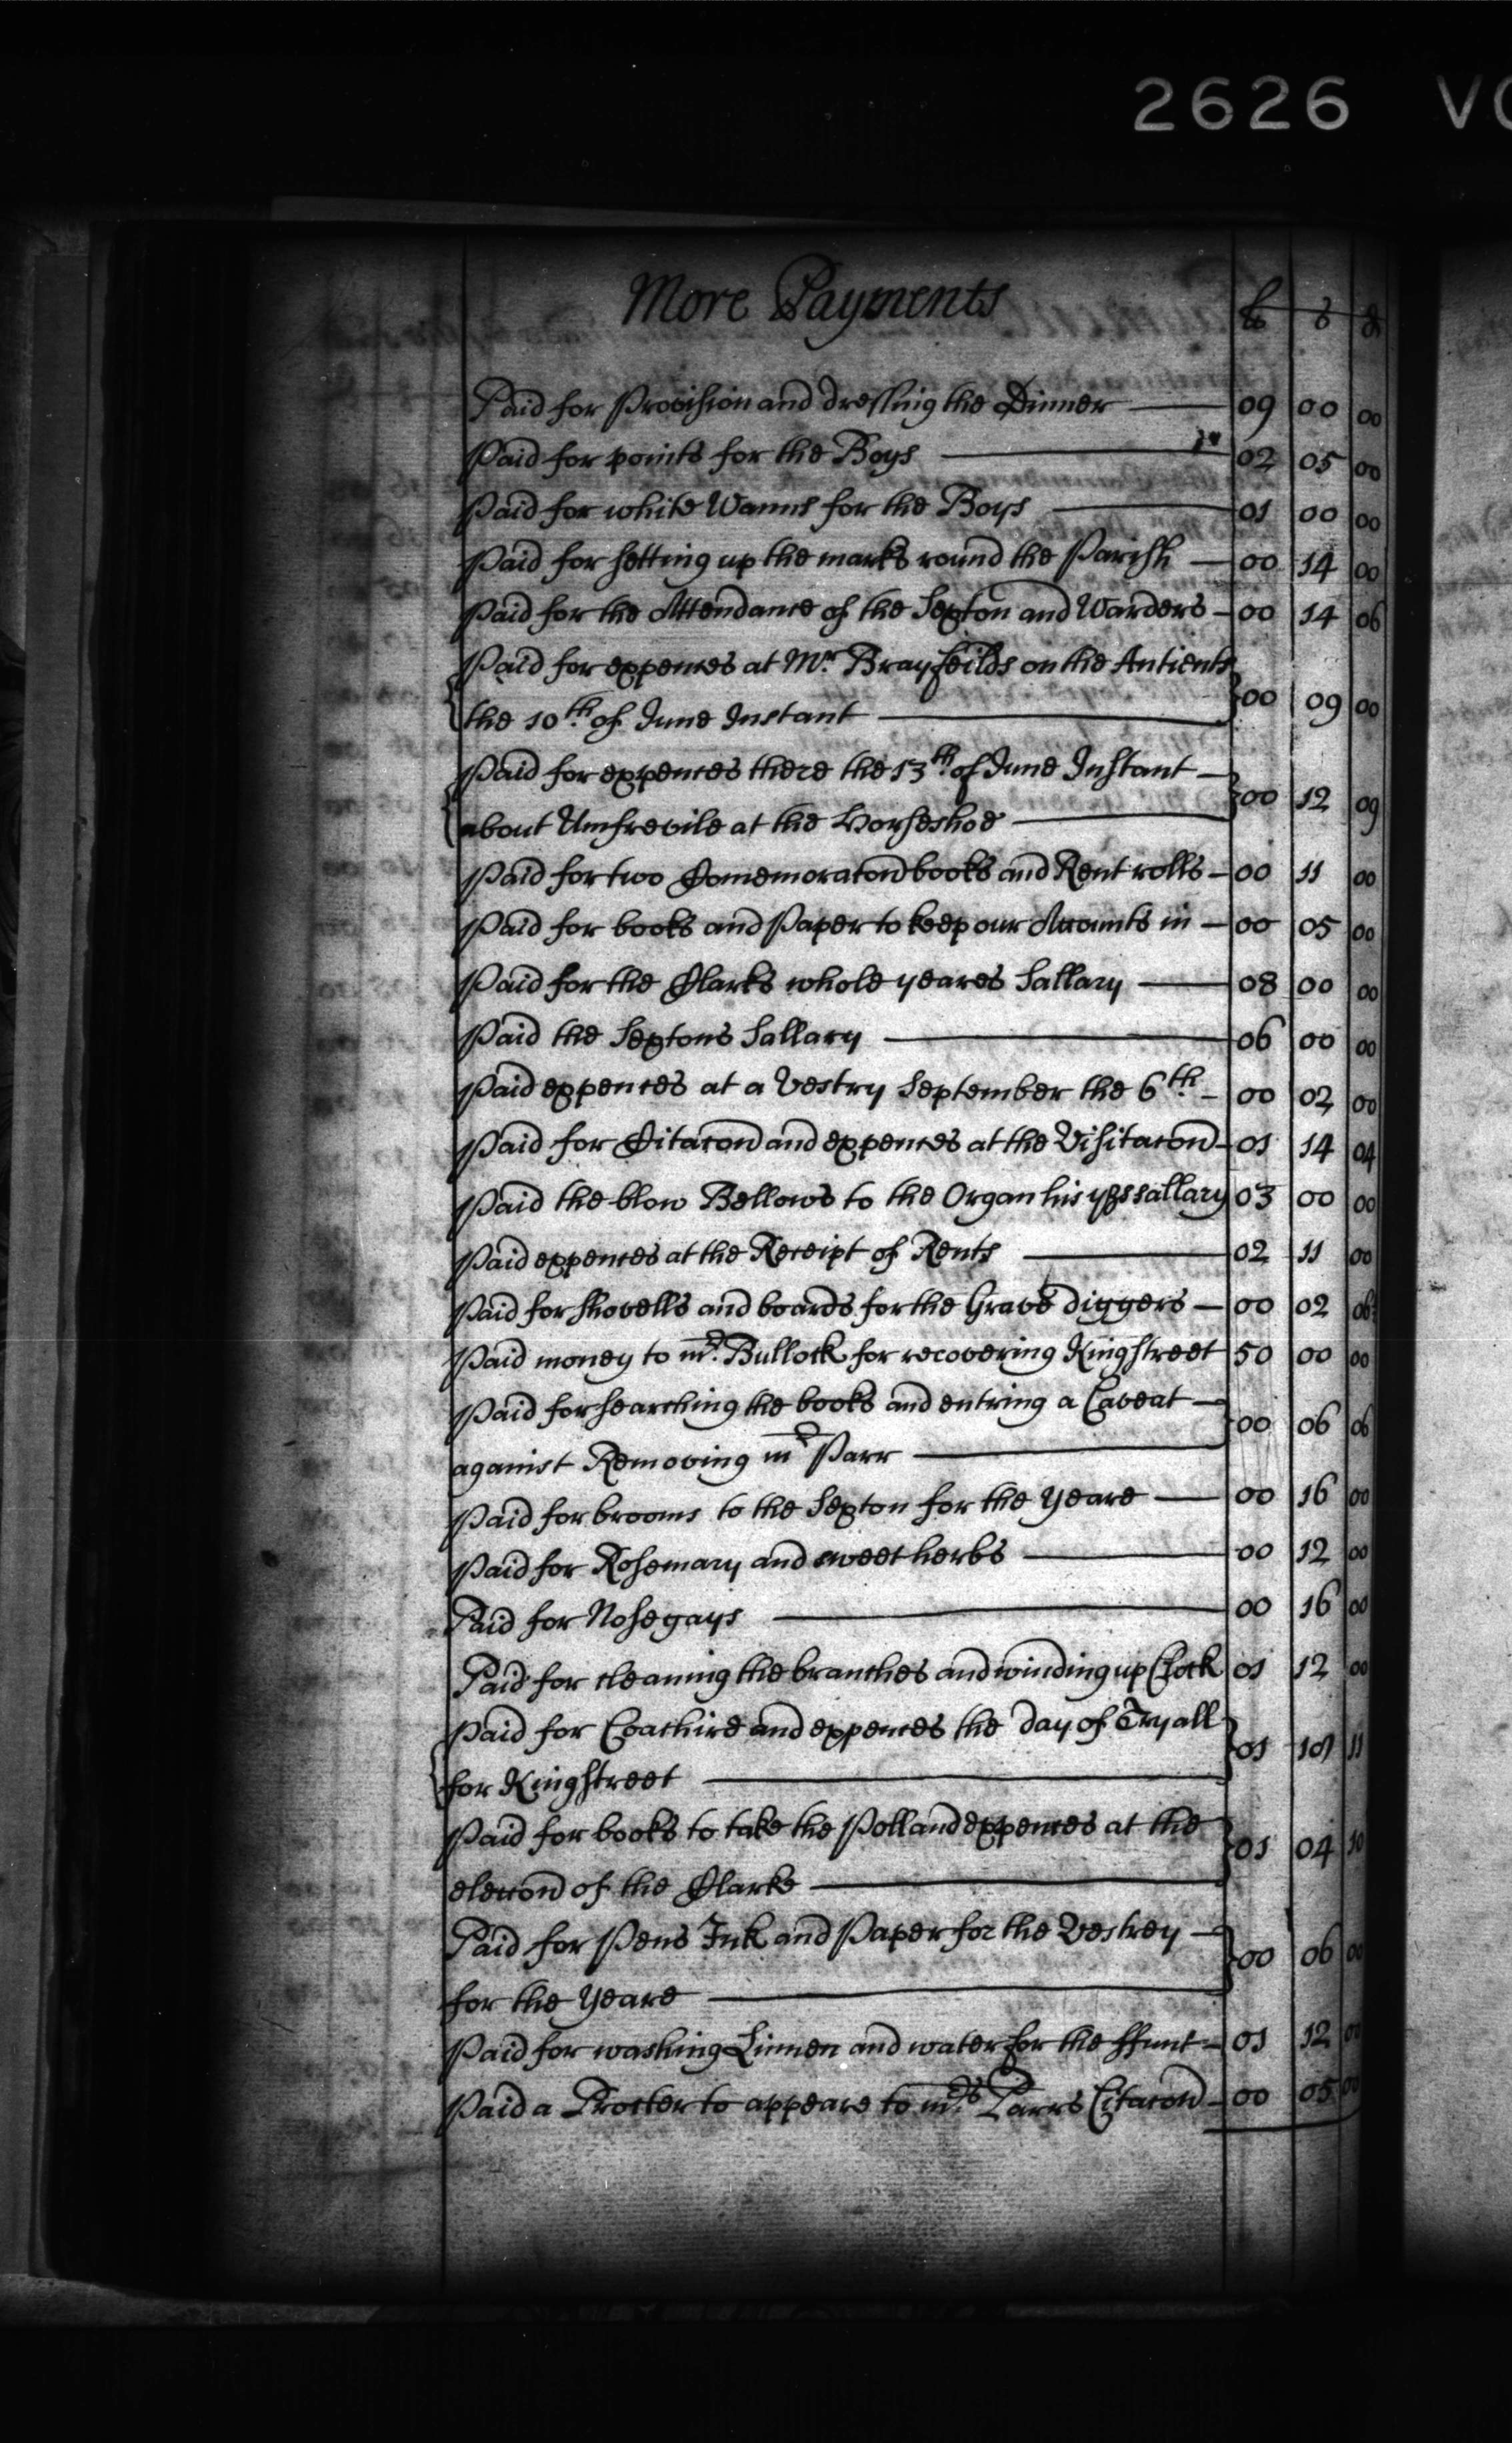 2626 VO
More Payments
lb s d
Paid for Provision and dressing the Dinner — 09 00 00
Paid for points for the Boys — 02 05 00
Paid for white Wanns for the Boys — 01 00 00
Paid for setting up the marks round the Parish — 00 14 00
Paid for the Attendance of the Sexton and Warders — 00 14 06
Paid for expences at Mr. Brayfeilds on the Antients
the 10th. of June Instant — 00 09 00
Paid for expences there the 13th. of June Instant —
about Umfrevile at the Horseshoe — 00 12 09
Paid for two Comemoracon books and Rent rolls — 00 11 00
Paid for books and Paper to keep our Accounts in — 00 05 00
Paid for the Clarks whole yeares Sallary — 08 00 00
Paid the Sextons Sallary — 06 00 00
Paid expences at a Vestry September the 6th. — 00 02 00
Paid for Citacon and expences at the Visitacon — 01 14 04
Paid the blow Bellows to the Organ his yrs sallary 03 00 00
Paid expences at the Receipt of Rents — 02 11 00
Paid for shovells and boards for the Grave diggers — 00 02 06
Paid money to mr. Bullock for recovering Kingstreet 50 00 00
Paid for searching the books and entring a Caveat —
against Removing mr Parr — 00 06 06
Paid for brooms to the Sexton for the Yeare — 00 16 00
Paid for Rosemary and sweet herbs — 00 12 00
Paid for Nosegays — 00 16 00
Paid for cleaning the branches and winding up Clock 01 12 00
Paid for Coachire and expences the day of Tryall
for Kingstreet — 01 11
Paid for books to take the Poll and expences at the
eleccon of the Clarke — 01 04 10
Paid for Pens Ink and Paper for the Vestrey —
for the Yeare — 00 06 00
Paid for washing Linnen and water for the ffunt — 01 12 00
Paid a Procter to appeare to mrs. Parrs Citacon — 00 05 00